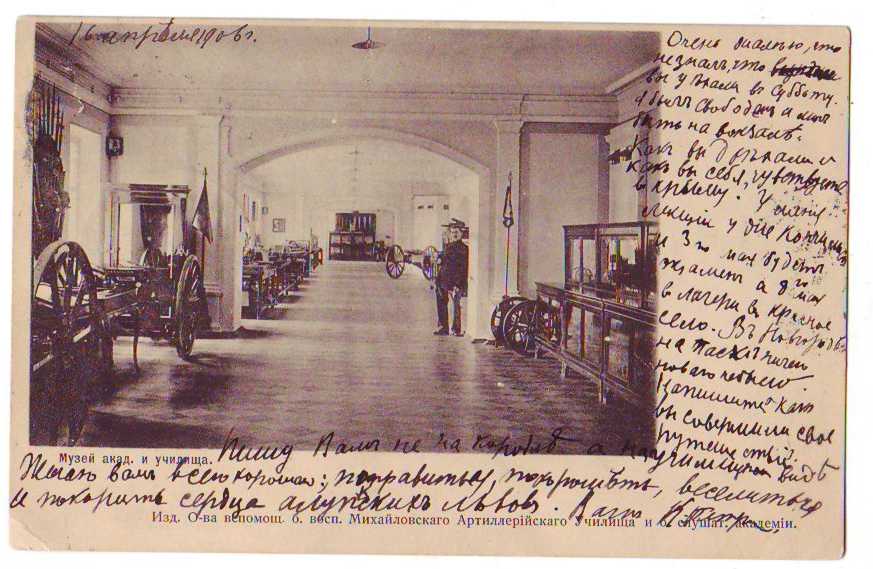 16 апрѣля 1906 г.
Очень жалѣю, что
не зналъ, что
вы уѣхали въ субботу.
Я былъ свободенъ и могъ
быть на вокзалѣ.
Какъ вы доѣхали и
какъ вы себя чувствуете
въ Крыму. У меня
лекціи уже кончились
и 3го мая будетъ
экзаменъ а 8го мая
въ лагери въ Красное
село. Въ Новгородѣ
на Пасхѣ ничего
новаго небыло.
Напишите какъ
вы совершили свое
путешествіе.
Музей акад. и училища.
Пишу Вамъ не на а на училищн видѣ
Желаю вамъ всего хорошаго; поправиться, похорошѣть, веселиться
и покорить сердца алупскихъ львовъ. Вашъ
Изд. О-ва вспомощ. б. восп. Михайловскаго Артиллерійскаго Училища и б. слушат. академіи.